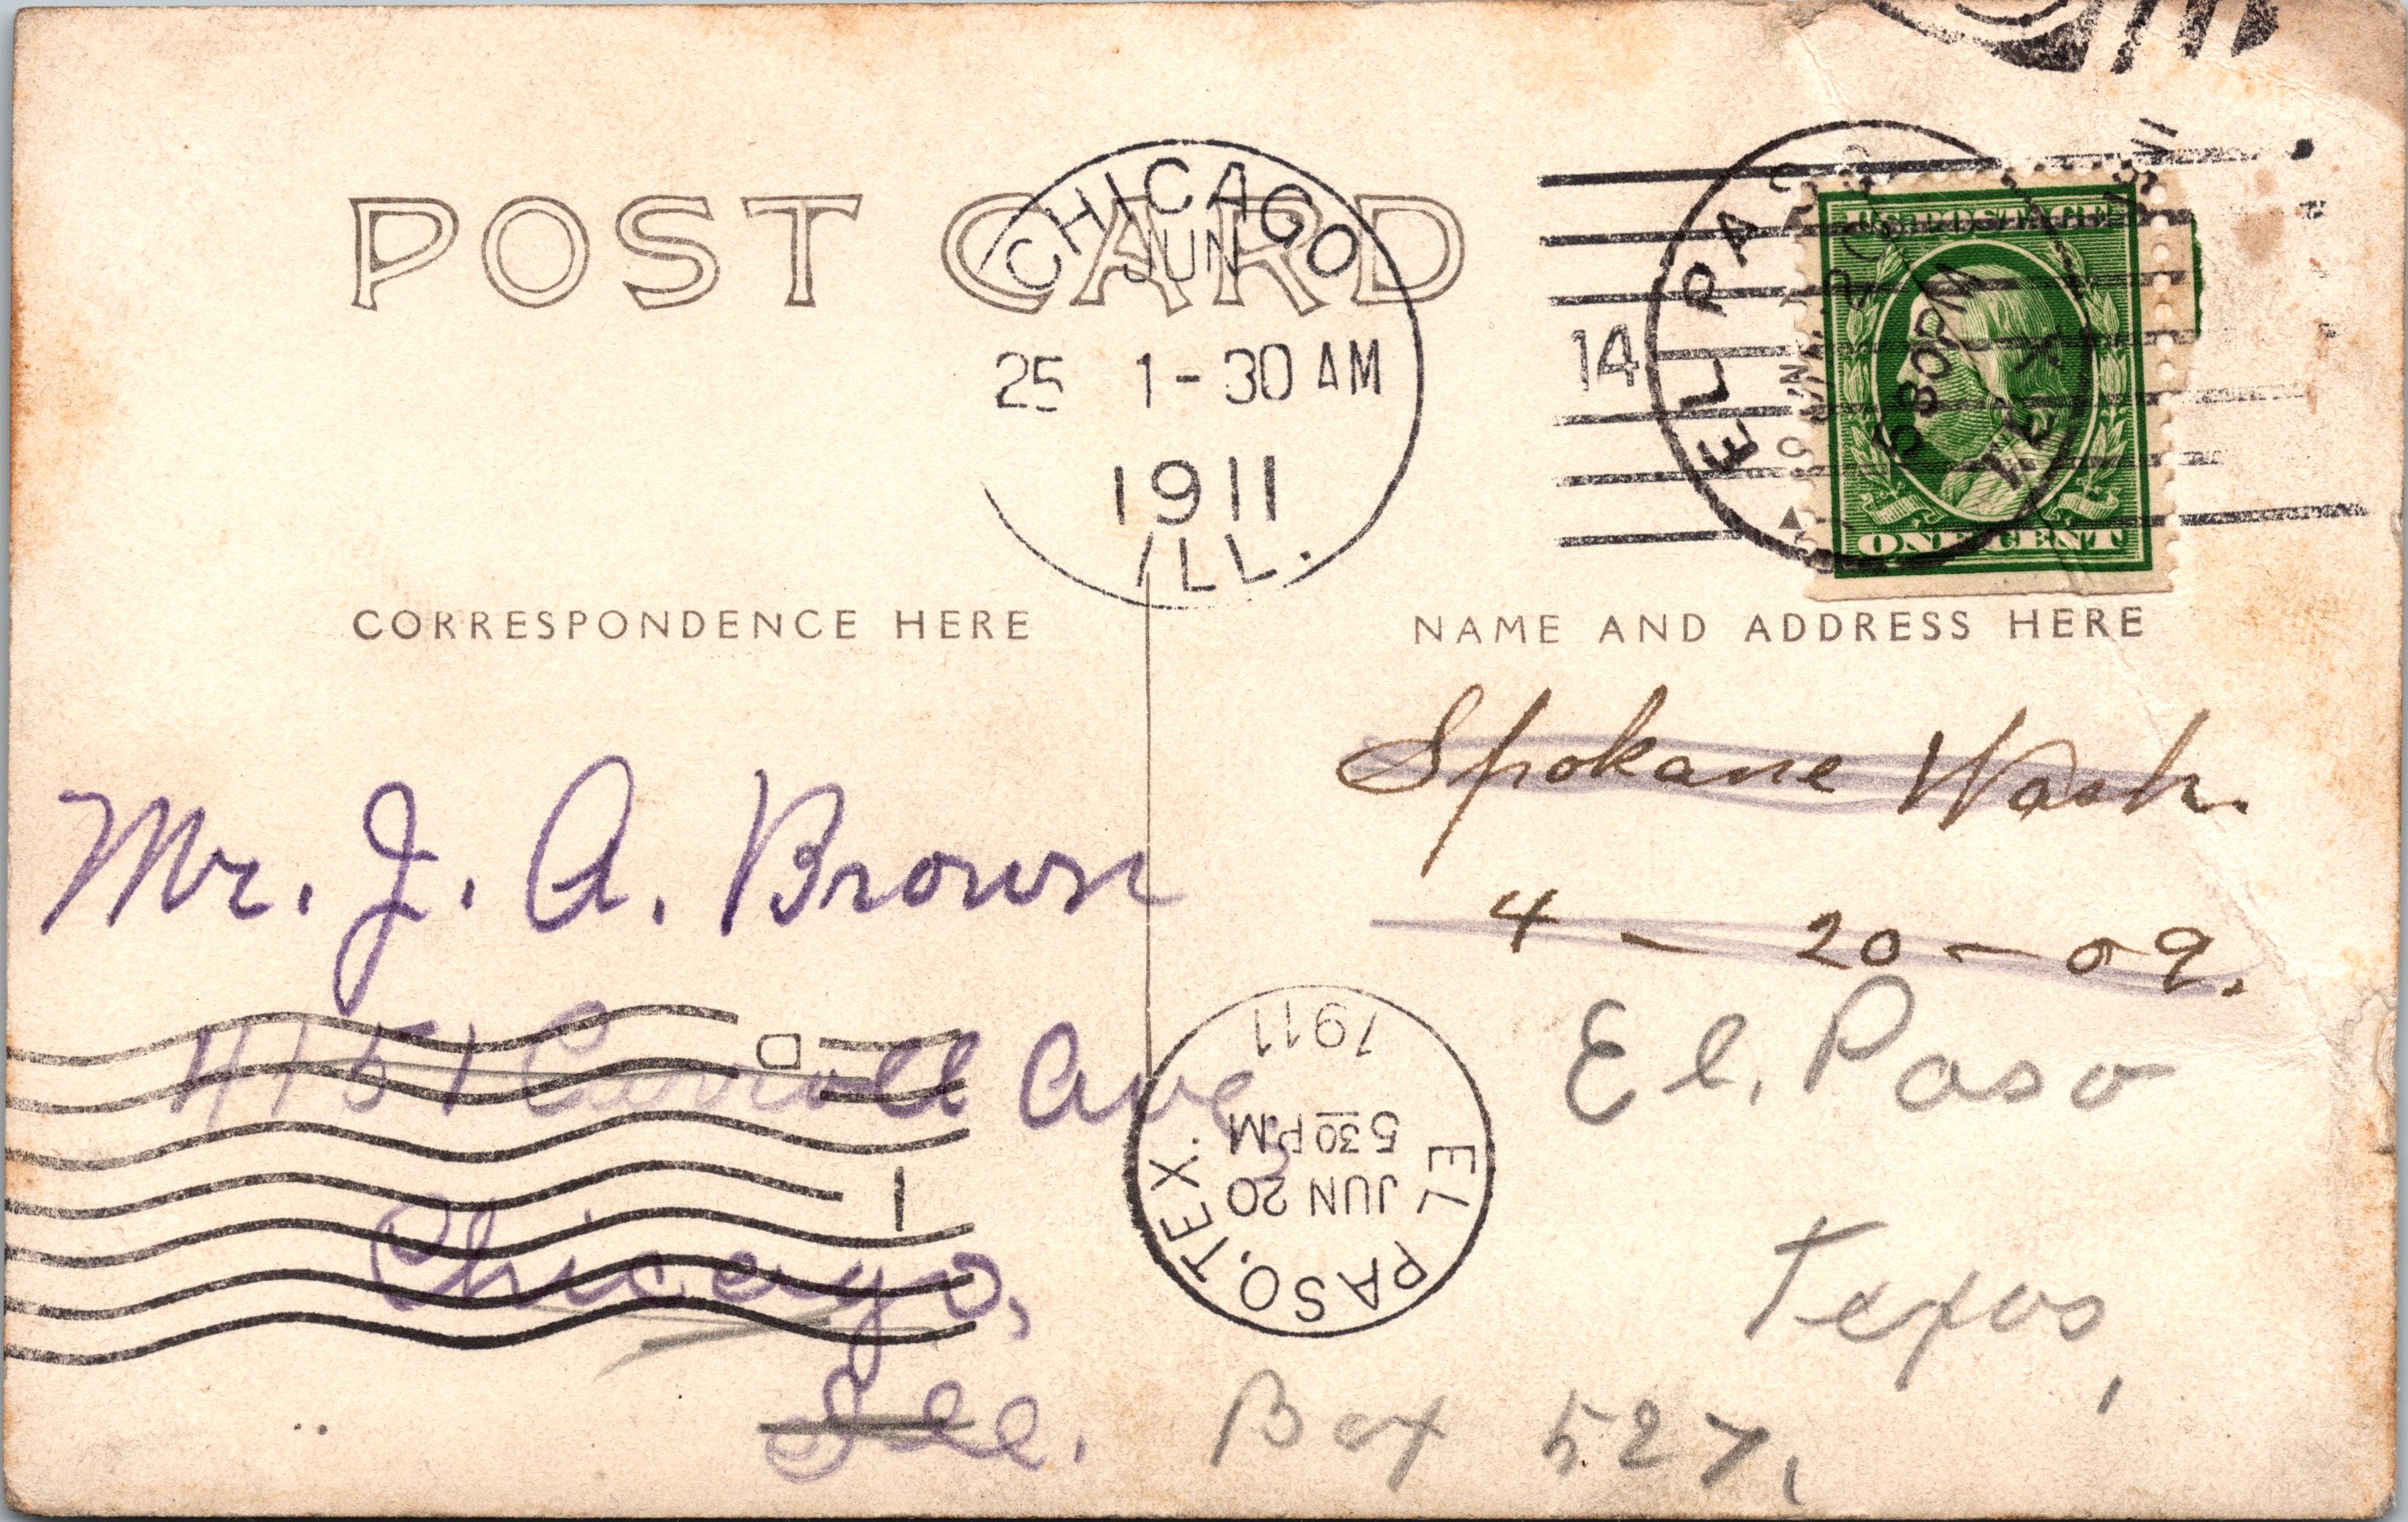 POST CARD
CHICAGO
JUN
25 1-30 AM
1911
ILL.
14
EL PASO
530PM
TEX
U.S. POSTAGE
ONE CENT
CORRESPONDENCE HERE
NAME AND ADDRESS HERE
Spokane Wash.
4 — 20 — 09.
Mr. J. A. Brown
4151 Carroll Ave
Chicago,
Ill.
D
1
EL PASO, TEX.
JUN 20
530 P.M
1911
El. Paso
Texas,
Box 527,